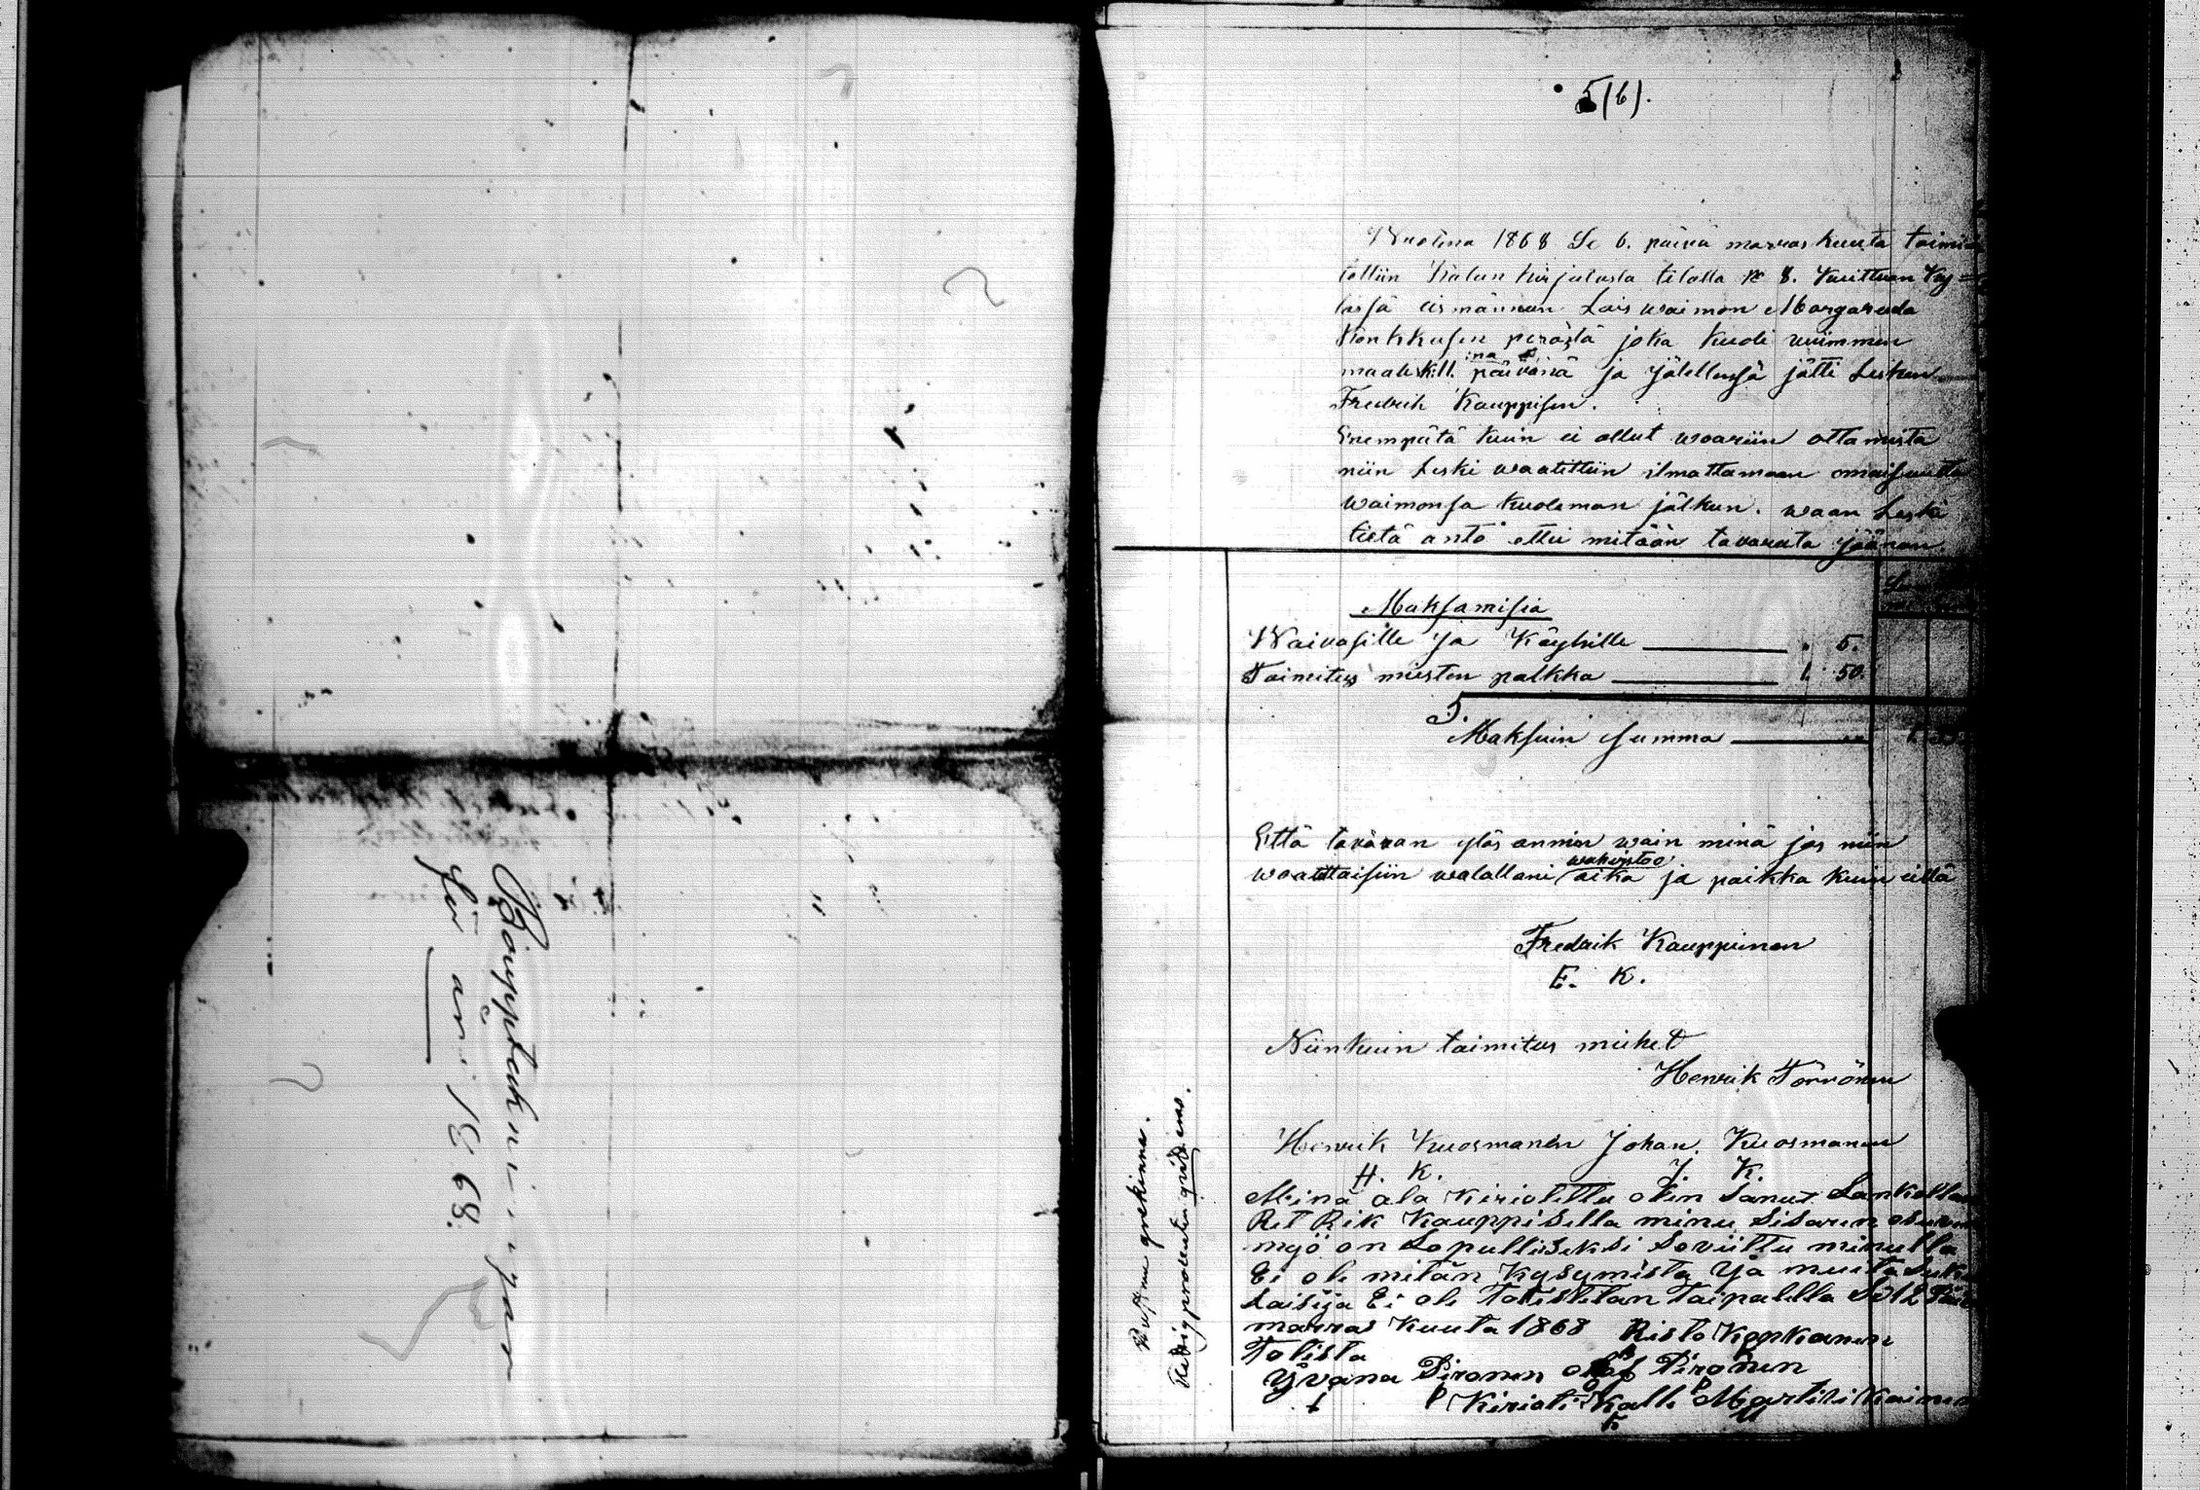 Bouppteckningar
för år 1868.
5(6).
Wuotena 1868 Se 6. päivä marras kuuta toimi
tettiin Kalun kirjutusta tilalla № 8. Kuittuan Ky=
läsjä eismännän Lois waimon Margareeda
Konkkusen peräştä joka kuoli wiimmen
maalisk. 11. na päivänä ja jälellensä jätti Lesken
Fredrik Kauppisen.
Enempätä kuin ei ollut waariin ottamista
niin Leski waatittiin ilmottamaan omaisuutta
Waimonsa kuoleman jälkun. waan Leski
tietä antö ettei mitään tavarata jäänen.
Maksamisia
Waivasille ja Köyhille . 5.
Toimitus miesten palkka 1. 50.
5.
Maksuin summa
Että tavaran ylös annin wain minä jos niin
waadittaisiin walallani wahvistoo aika ja paikka kuin eillä
Fredrik Kauppinen
E. K.
Niinkuin toimitus miehet
Henrik Törrönen
Henrik Kuosmanen Johan Kuosmanen
H. K. J. K.
Minä ala Kirioitettu olen Sanut Lankollan
Ret Rik Kauppisella minu Sisarun osuu
myö on Lopulliseksi Soviittu minulla
Ei ole mitän Kysymistä Ja muita Suk
laisija Ei ole Totistetan Taipalella Se 12 Päi
marras Kuuta 1868 Risto Konkanen
Totista
Yvana Pironen olof Pironen
Kirioti Kalle Martikikainen